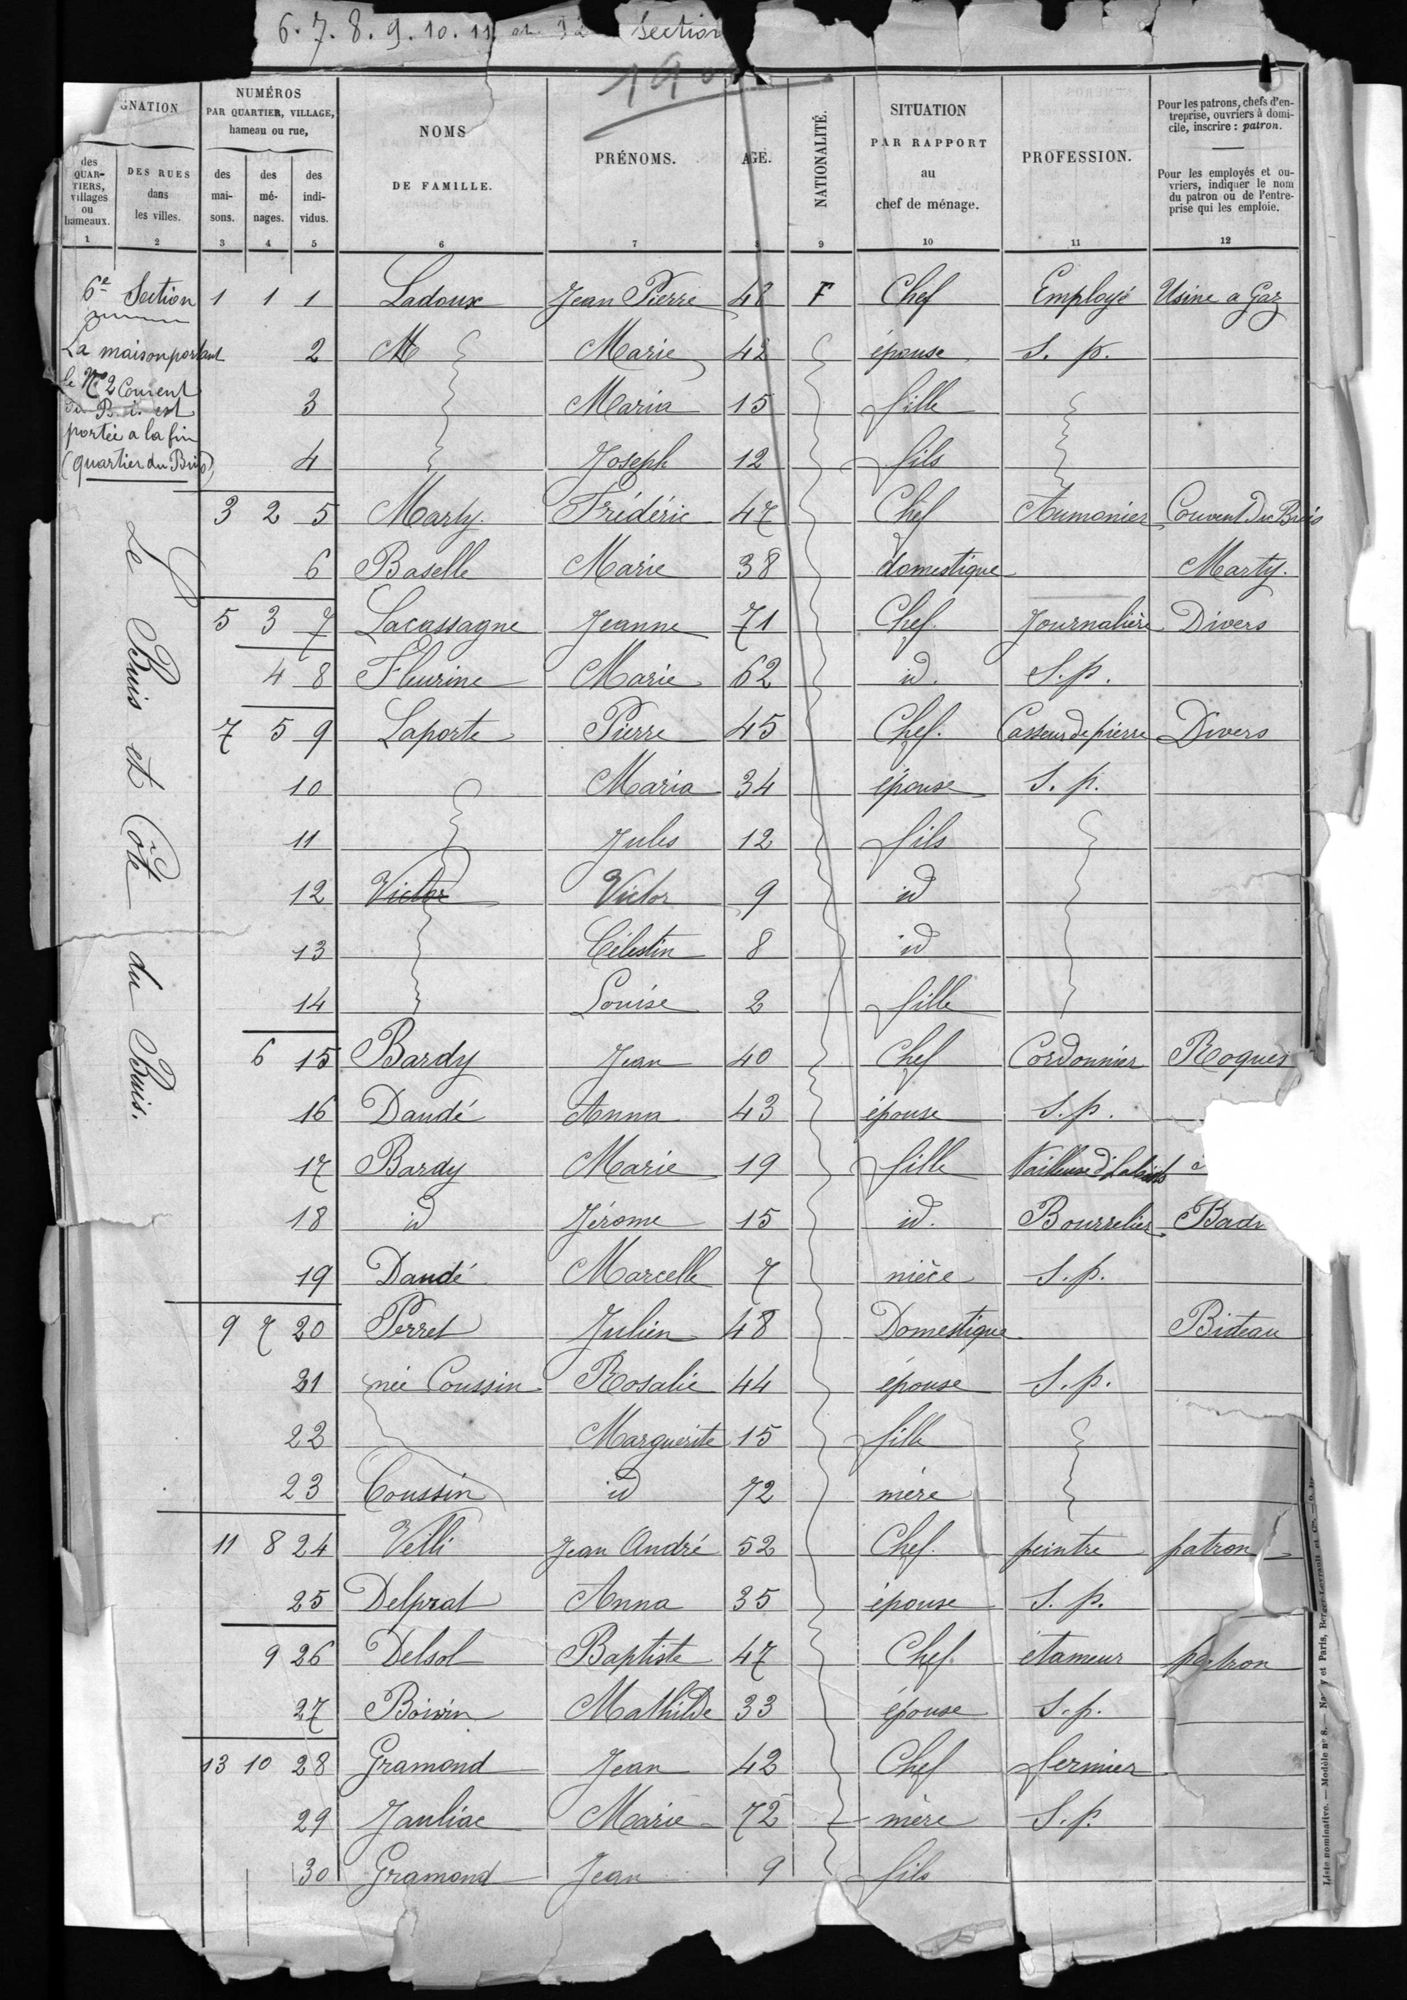 6. 7. 8. 9. 10. 11. et 12 Section
GNATION
NUMÉROS
PAR QUARTIER, VILLAGE,
hameau ou rue,
NOMS
DE FAMILLE.
PRÉNOMS.
AGE.
NATIONALITÉ.
SITUATION
PAR RAPPORT
au
chef de ménage.
PROFESSION.
Pour les patrons, chefs d'en-
treprise, ouvriers à domi-
cile, inscrire : patron.
Pour les employés et ou-
vriers, indiquer le nom
du patron ou de l'entre-
prise qui les emploie.
des
QUAR-
TIERS,
villages
ou
hameaux.
DES RUES
dans
les villes.
des
mai-
sons.
des
mé-
nages.
des
indi-
vidus.
1 2 3 4 5 6 7 8 9 10 11 12
6e Section 1 1 1 Ladoux Jean Pierre 48 F Chef Employé Usine a Gaz
La maison portant 2 Marie 42 épouse S. p.
le No 2 Couvent 3 Maria 15 fille
du Buis est
portée a la fin
(quartier du Buis) 4 Joseph 12 fils
Le Buis et Côte du Buis.
3 2 5 Marty Frédéric 47 Chef Aumonier Couvent Du Buis
6 Baselle Marie 38 domestique Marty.
5 3 7 Lacassagne Jeanne 71 Chef. Journalière Divers
4 8 Fleurine Marie 62 id. S. p.
7 5 9 Laporte Pierre 45 Chef. Casseur de pierre Divers
10 Maria 34 épouse S. p.
11 Jules 12 fils
12 Victor Victor 9 id
13 Célestin 8 id
14 Louise 2 fille
6 15 Bardy Jean 40 Chef Cordonnier Roques
16 Daudé Anna 43 épouse S. p.
17 Bardy Marie 19 fille
18 id Jérome 15 id. Bourrelier Badr
19 Daudé Marcelle 7 nièce S. p.
9 7 20 Perret Julien 48 Domestique Bideau
21 née Coussin Rosalie 44 épouse S. p.
22 Marguerite 15 fille
23 Coussin id 72 mère
11 8 24 Velli Jean André 52 Chef. peintre patron
25 Delprat Anna 35 épouse S. p.
9 26 Delsol Baptiste 47 Chef étameur patron
27 Boivin Mathilde 33 épouse S. p.
13 10 28 Gramond Jean 42 Chef fermier
29 Jauliac Marie 72 mère S. p.
30 Gramond Jean 9 fils
Liste nominative. — Modèle no 8.